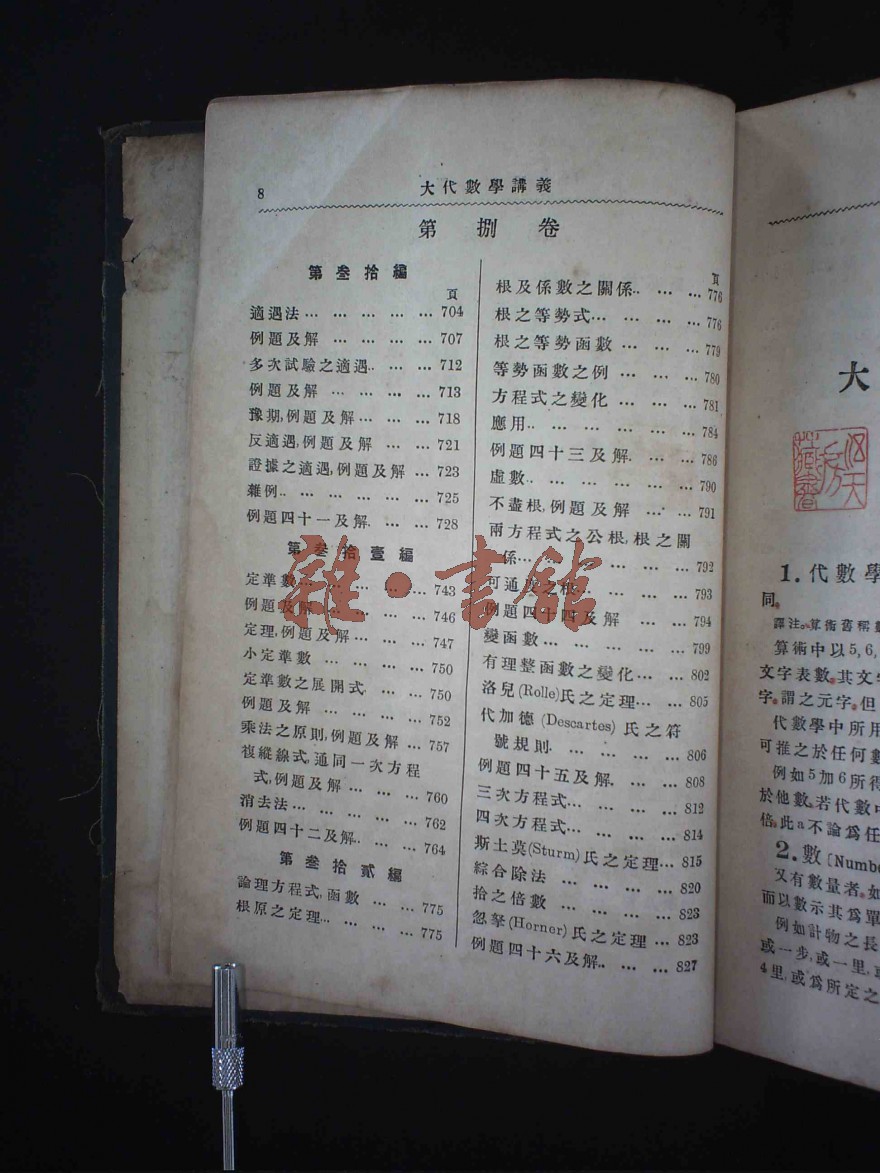 8
大代數學講義
第 捌 卷
第叁拾編
頁
適遇法 … … … … … 704
例題及解 … … … … 707
多次試驗之適遇.. … … 712
例題及解 … … … … 713
豫期,例題及解 … … … 718
反適遇,例題及解 … … 721
證據之適遇,例題及解 … 723
雜例.. … … … … … 725
例題四十一及解. … … 728
第叁拾壹編
定準數 … … … … … 743
例題及解 … … … … 746
定理,例題及解 … … … 747
小定準數 … … … … 750
定準數之展開式. … … 750
例題及解 … … … … 752
乘法之原則,例題及解 … 757
複縱線式,通同一次方程
式,例題及解 … … … 760
消去法… … … … … 762
例題四十二及解.. … … 764
第叁拾貳編
論理方程式,函數 … … 775
根原之定理… … … … 775
頁
根及係數之關係.. … … 776
根之等勢式… … … … 776
根之等勢函數 … … … 779
等勢函數之例 … … … 780
方程式之變化 … … … 781
應用.. … … … … … 784
例題四十三及解. … … 786
虛數.. … … … … … 790
不盡根,例題及解 … … 791
兩方程式之公根,根之關
係… … … … … … 792
可通度之根… … … … 793
例題四十四及解 … … 794
變函數… … … … … 799
有理整函數之變化… … 802
洛兒(Rolle)氏之定理… … 805
代加德 (Descartes) 氏之符
號規則. … … … … 806
例題四十五及解. … … 808
三次方程式… … … … 812
四次方程式… … … … 814
斯土莫(Sturm)氏之定理… 815
綜合除法 … … … … 820
拾之倍數 … … … … 823
忽拏(Horner)氏之定理 … 823
例題四十六及解.. … … 827
雜·書館
大
藏書
1. 代數學
同。
譯注。算術舊稱數
算術中以5,6,
文字表數。其文字
字。謂之元字。但
代數學中所用
可推之於任何數
例如5加6所得
於他數。若代數中
倍。此a不論爲任
2. 數 〔Numbe
又有數量者。如
而以數示其爲單
例如計物之長
或一步,或一里,或
4里,或爲所定之